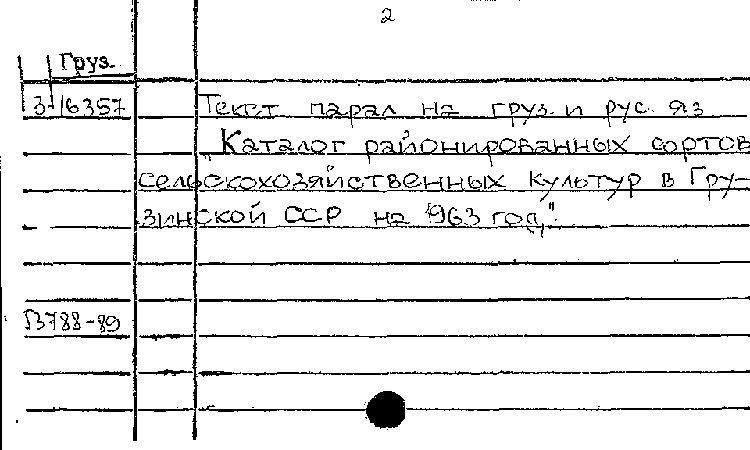 2
Груз.
3-16357
Текст парал на груз. и рус. яз.
"Каталог районированных сортов
сельскохозяйственных культур в Гру-
зинской ССР на 1963 год".
3788-89